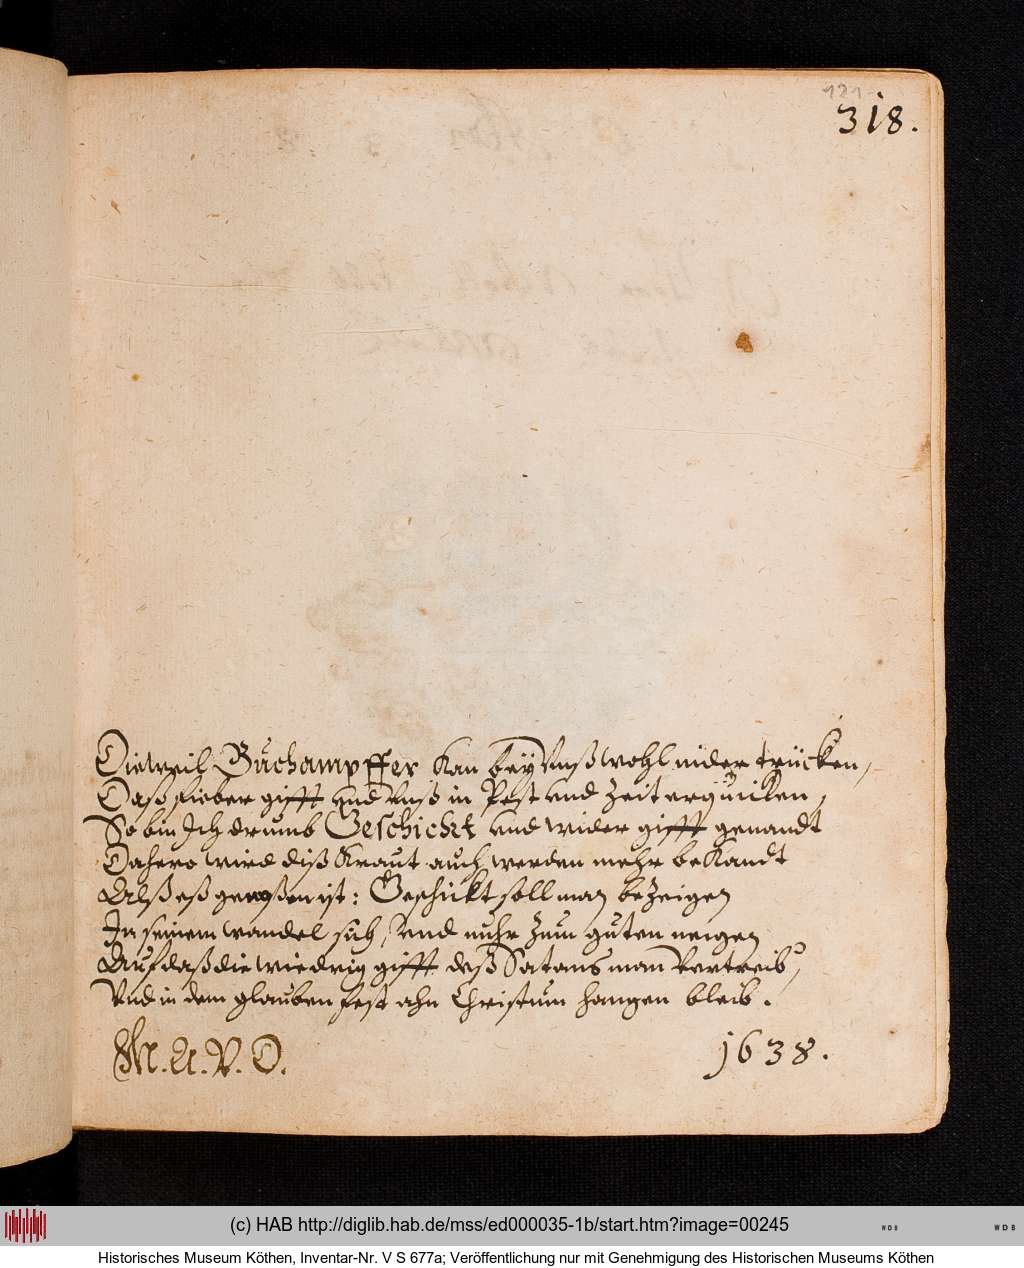 121
318.
Dieweil Buchampffer kan beÿ Vnß wohl nider trücken,
Daß fieber gifft vnd vnß in Pest vnd Zeit erquicken,
So bin Ich drumb Geschickt vnd wider gifft genandt
Dahero wird diß Kraut auch werden mehr bekandt
Alß eß geweßen ist: Geschickt soll man bezeigen
In seinem wandel sich, Vnd nuhr Zum guten neigen
Auf daß die wiedrig gifft deß Satans man Vertreib,
Vnd in dem glauben fest ahn Christum hangen bleib.
M. A. V. O.
1638.
(c) HAB http://diglib.hab.de/mss/ed000035-1b/start.htm?image=00245
WDB
WDB
Historisches Museum Köthen, Inventar-Nr. V S 677a; Veröffentlichung nur mit Genehmigung des Historischen Museums Köthen